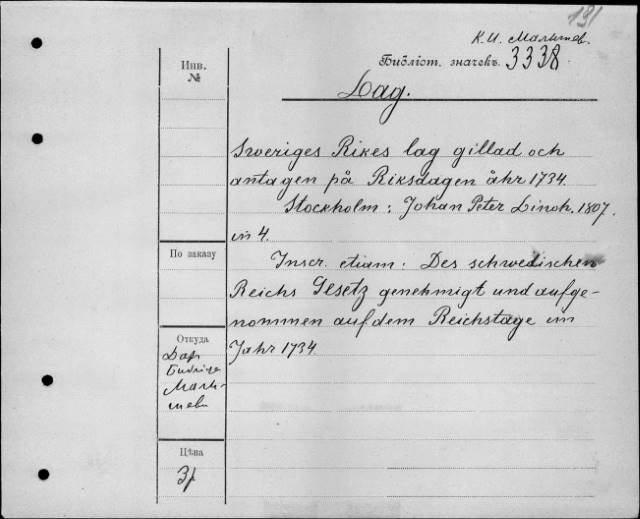 191
К. И. Малышев.
Библіот. значекъ. 3338
Инв.
№
Lag.
Sweriges Rikes lag gillad och
antagen på Riksdagen åhr 1734.
Stockholm: Johan Peter Lindh. 1807.
in 4.
По заказу
Inscr. etiam: Des schwedischen
Reichs Gesetz genehmigt und aufge-
nommen auf dem Reichstage im
Jahr 1734.
Откуда
Дар
Малы-
шева
Цѣна
3р